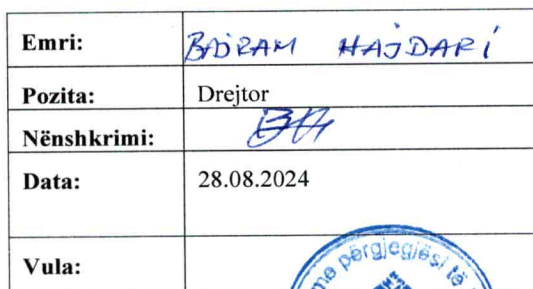 Emri: BAJRAM HAJDARI
Pozita: Drejtor
Nënshkrimi:
Data: 28.08.2024
Vula: me përgjegjësi të